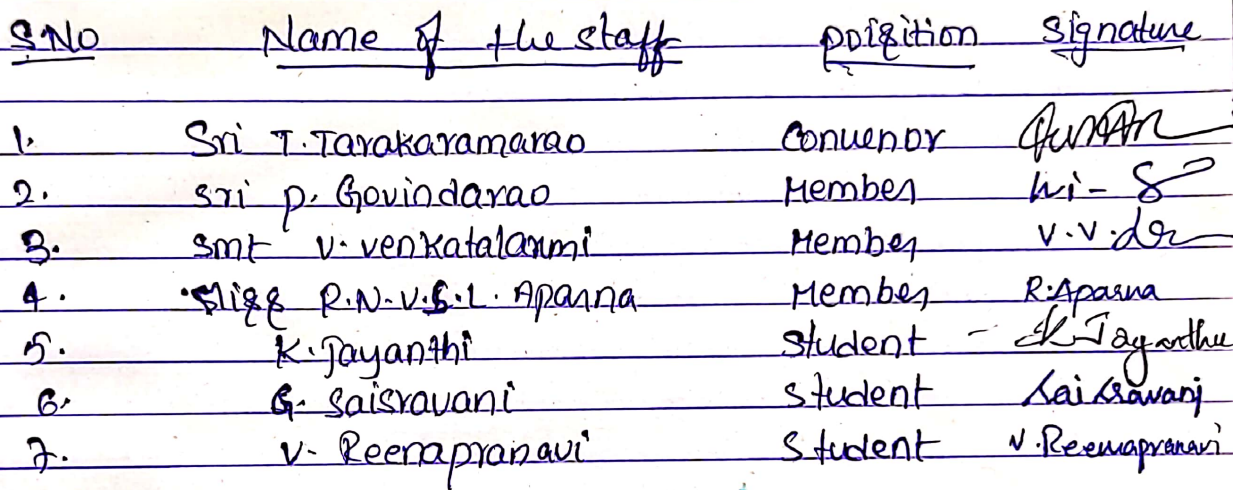 S.No Name of the staff Poisition Signature
1. Sri T. Tarakaramarao Convenor
2. Sri P. Govindarao Member
3. Smt V. Venkatalaxmi Member V.V.
4. Miss R.N.V.S.L. Aparna Member R. Aparna
5. K. Jayanthi Student - K Jayanthi
6. G. Saisravani Student Sai Sravani
7. V. Reenapranavi Student V. Reenapranavi